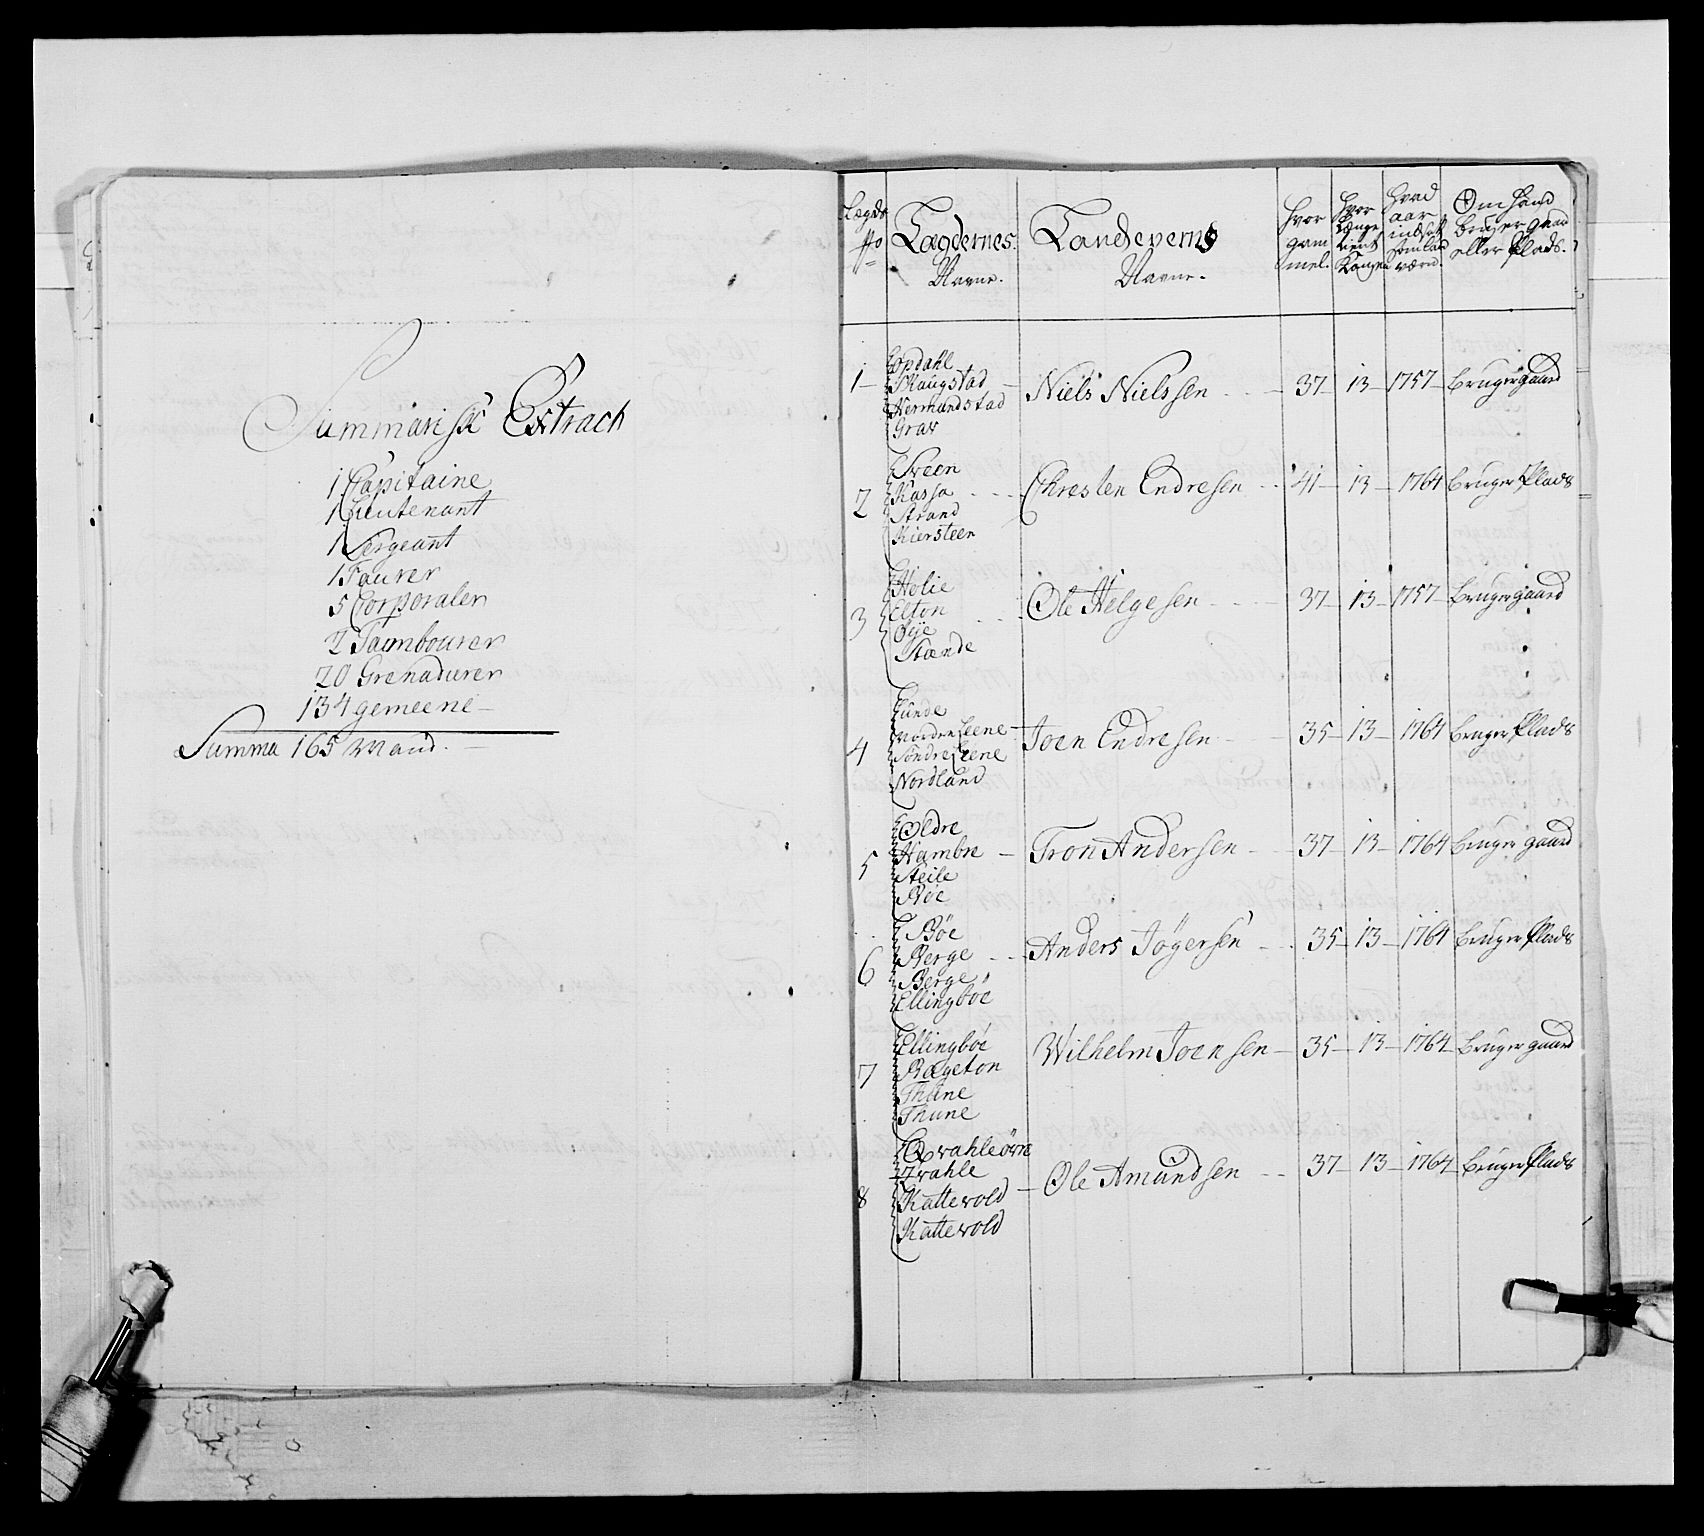 Summarisk Extrach
1 Capitaine
1 Lieutenant
1 Sergeant
1 Fourer
5 Corporaler
2 Tambourer
20 Grenaderer
134 gemeene
Summa 165 Mand.
Lægds No
Lægdernes Navne.
Landeverns Navne.
Hvor gammel.
Hvor længe tient Kongen
Hvad aar indsat som land værn.
Om hand bruger gaard eller Plads.
1 Opdahl
Skaugstad
Hermundstad
Grav
Niels Nielssen 37 13 1757 bruger gaard
2 Sveen
Kassa
Strand
Kiersteen
Christen Endresen 41 13 1764 bruger Plads
3 Holie
Elton
Øye
Stænde
Ole Helgesen 37 13 1757 bruger gaard
4 Lunde
Norden Leene
Søndre Leene
Nordland
Joen Endresen 35 13 1764 bruger Plads
5 Oldre
Hambre
Steile
Røe
Tron Andersen 37 13 1764 bruger gaard
6 Bøe
Berge
Berge
Ellingbøe
Anders Jøgersen 35 13 1764 bruger Plads
7 Ellingbøe
Rogeton
Thune
Thune
Wilhelm Joensen 35 13 1764 bruger gaard
8 Qvahleørn
Qvahle
Kattevold
Kattevold
Ole Amundsen 37 13 1764 bruger Plads